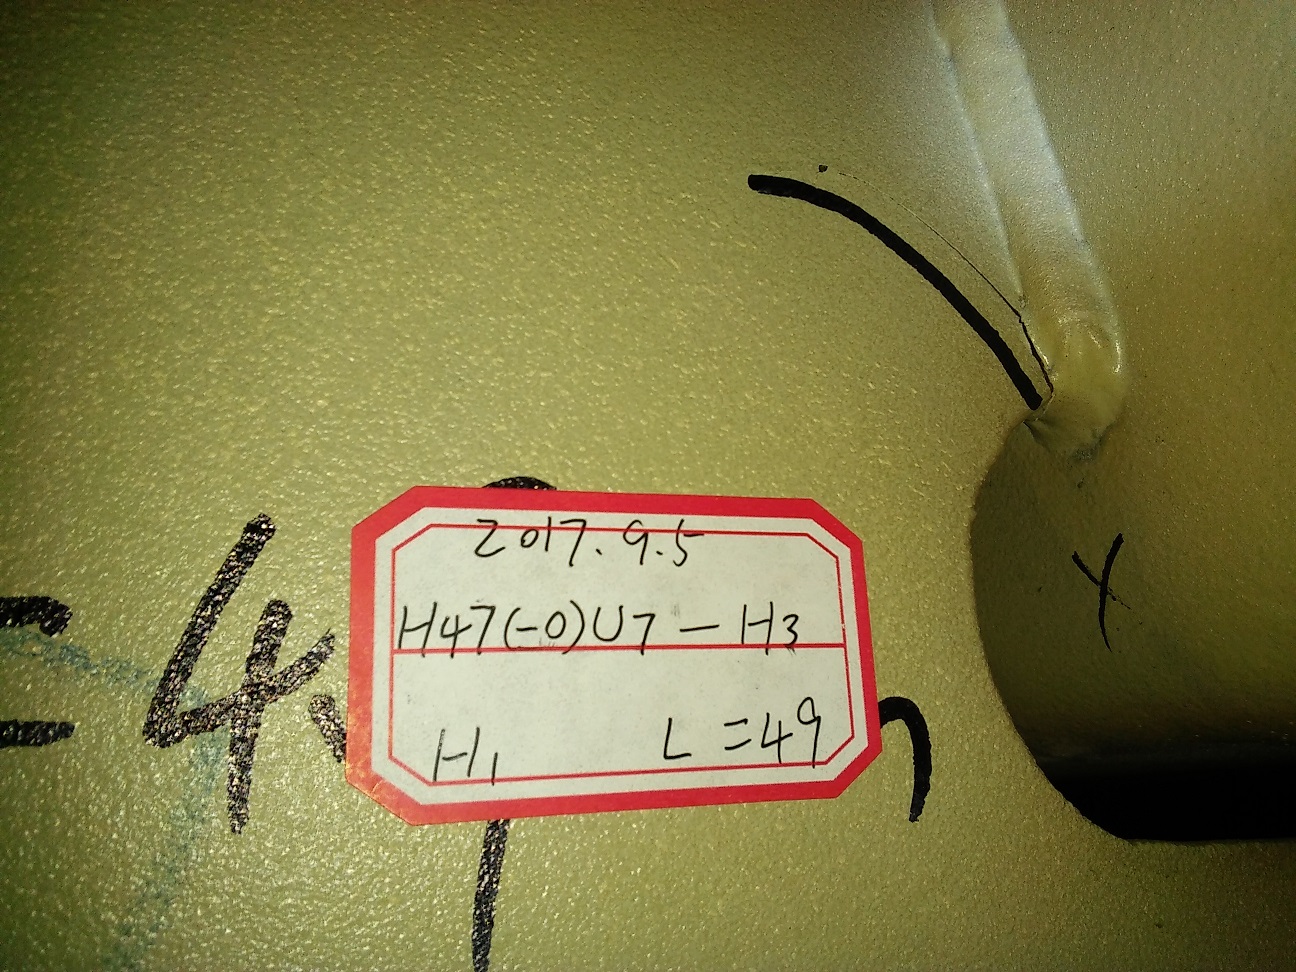 2017.9.5
H47(-0)U7-H3
H1 L=49
=4
X